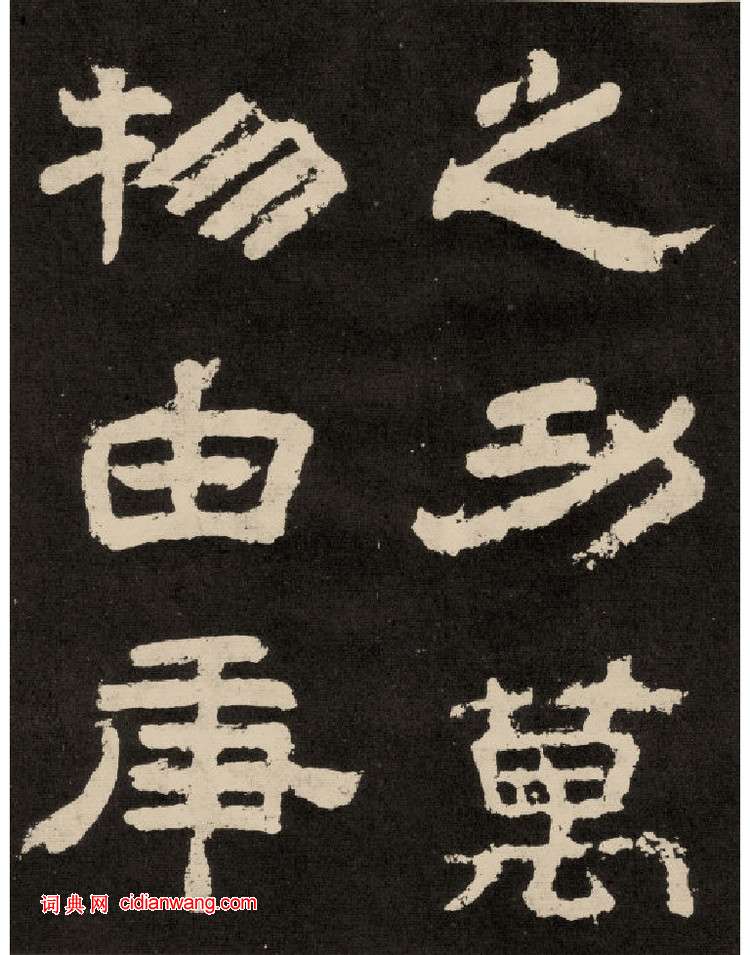 之功萬
物由庚
词典网 cidianwang.com